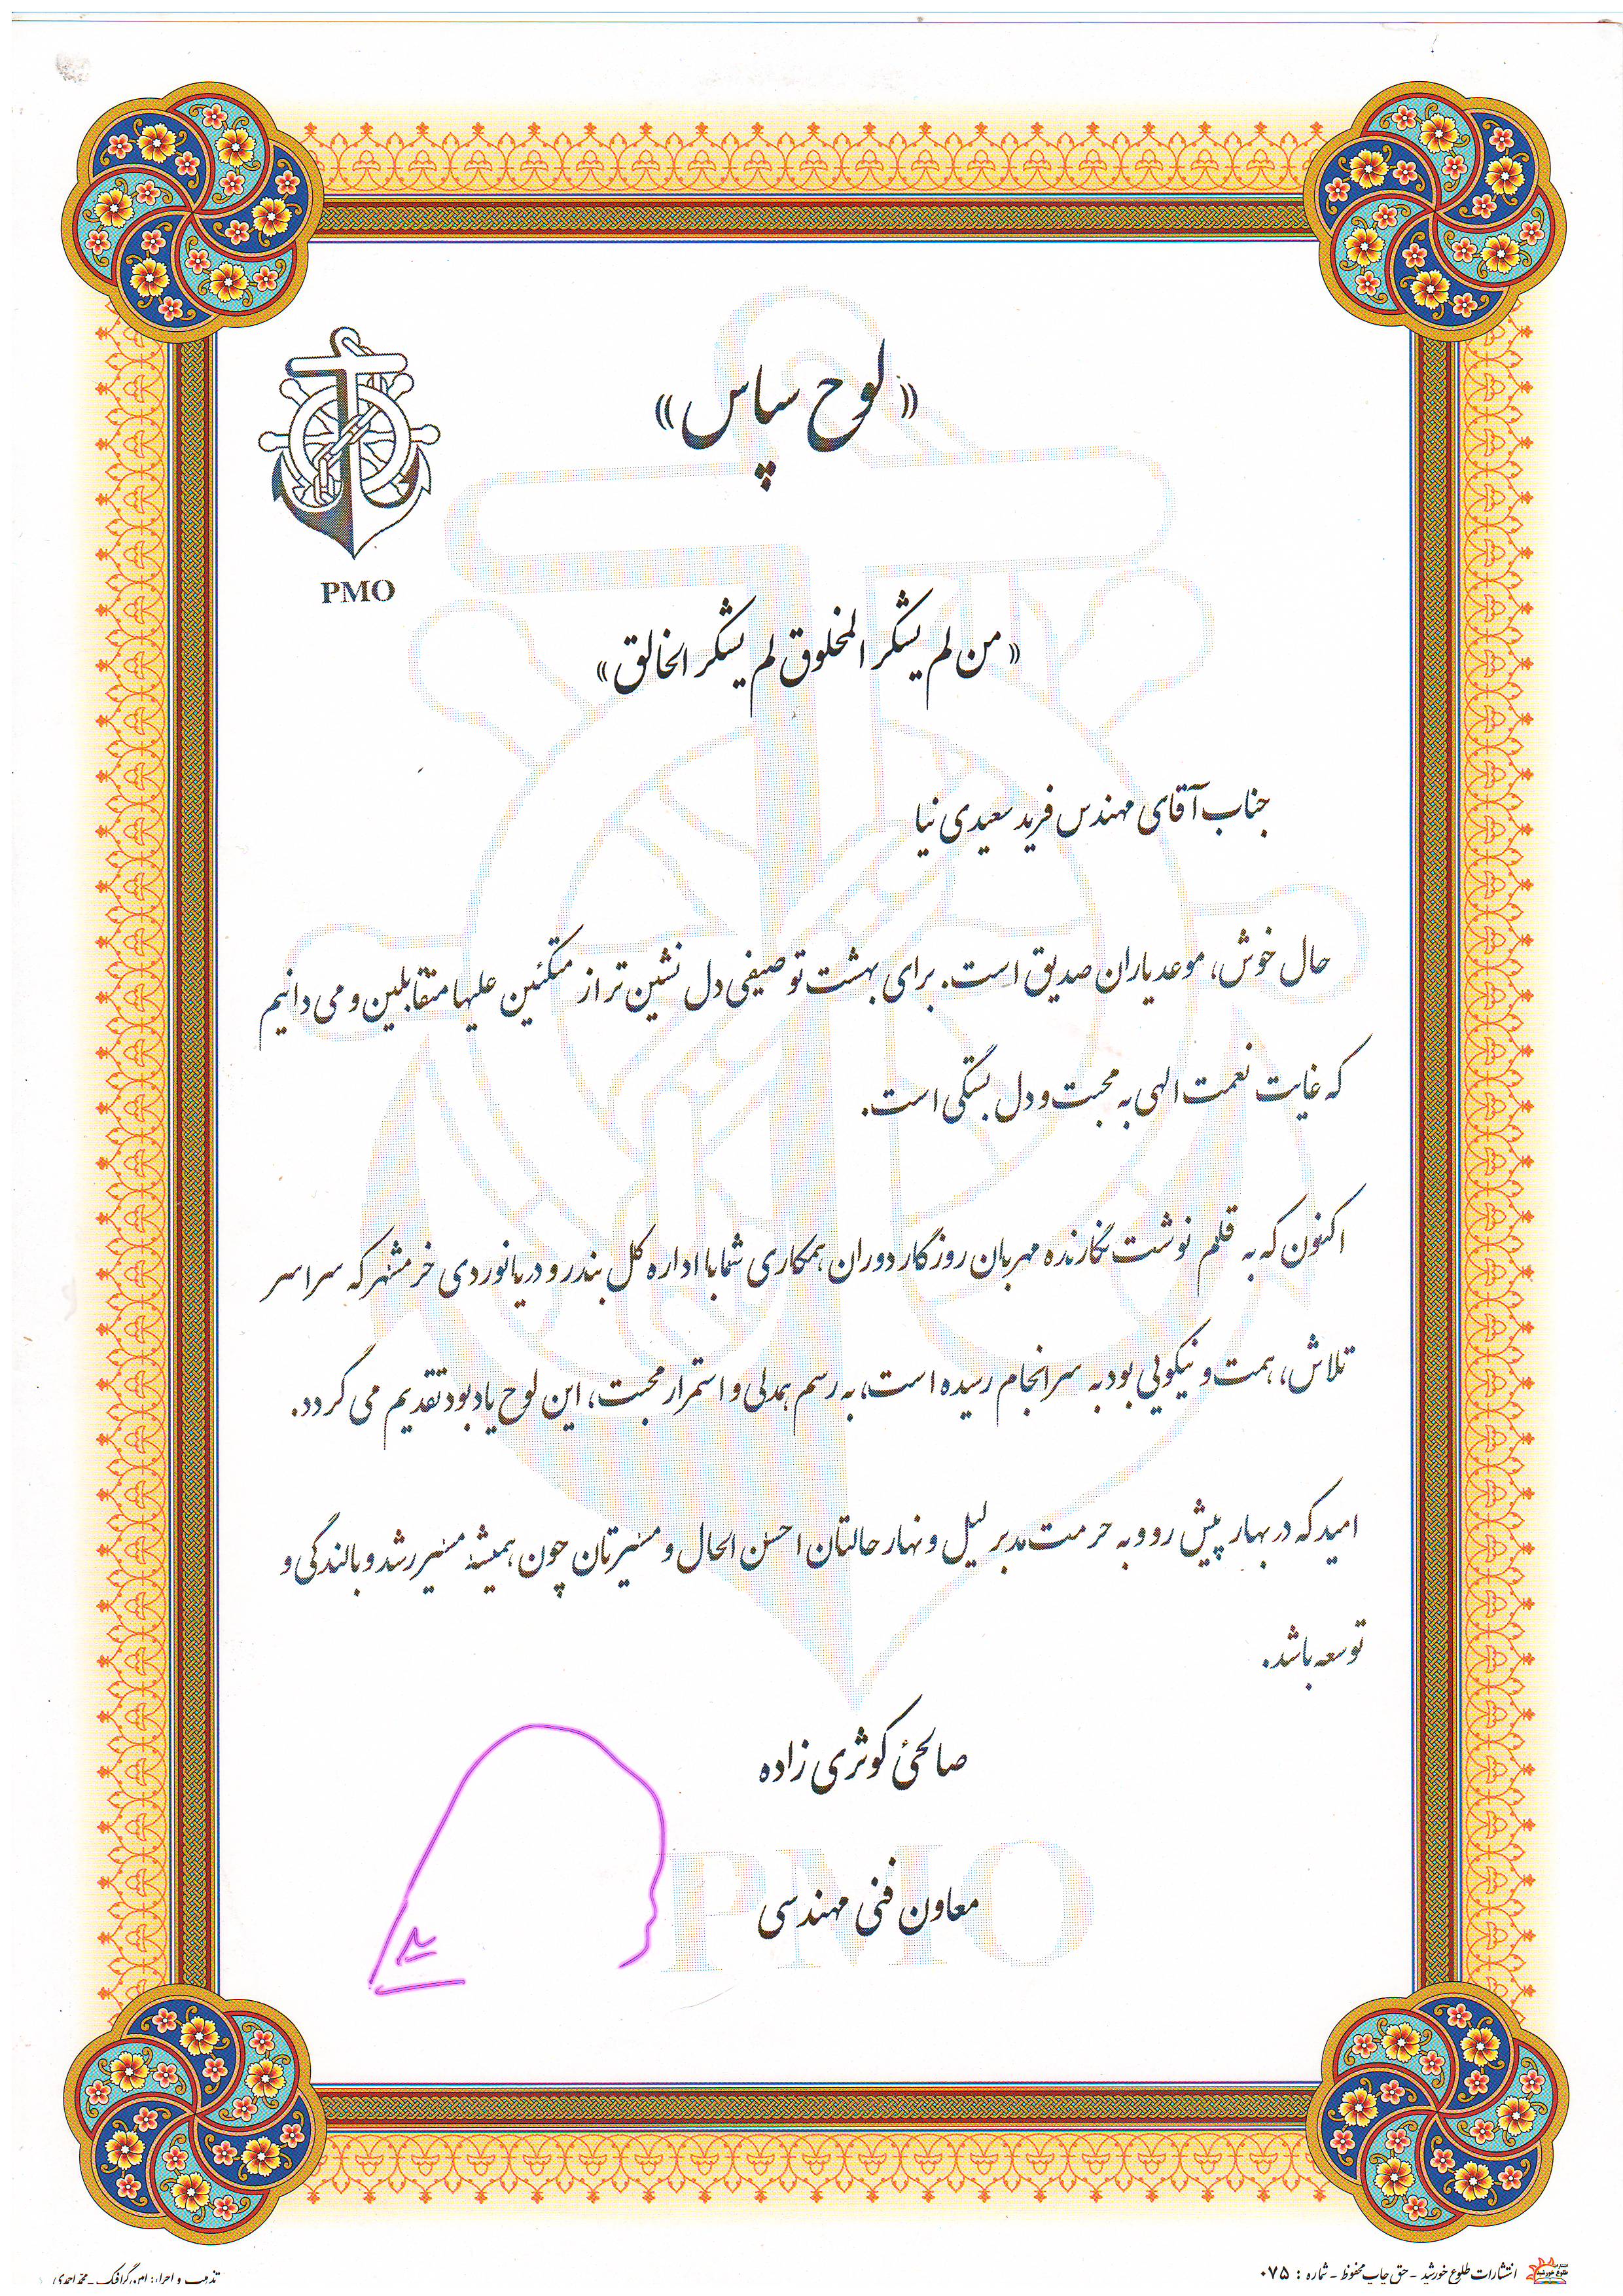 «لوح سپاس»
PMO
«من لم یشکر المخلوق لم یشکر الخالق»
جناب آقای مهندس فرید سعیدی نیا
حال خوش، موعد یاران صدیق است. برای بهشت توصیفی دل نشین تر از متکئین علیها متقابلین و می دانیم
که غایت نعمت الهی به محبت و دل بستگی است.
اکنون که به قلم نوشت نگارنده مهربان روزگار دوران همکاری شما با اداره کل بندر و دریانوردی خرمشهر که سراسر
تلاش، همت و نیکویی بود به سرانجام رسیده است، به رسم همدلی و استمرار محبت، این لوح یادبود تقدیم می گردد.
امید که در بهار پیش رو و به حرمت مدبر لیل و نهار حالتان احسن الحال و مسیرتان چون همیشه مسیر رشد و بالندگی و
توسعه باشد.
صالحی کوثری زاده
معاون فنی مهندسی
PMO
انتشارات طلوع خورشید - حق چاپ محفوظ - شماره : ۰۷۵
تذهیب و اجرا: گرافیک - محمد احمدی